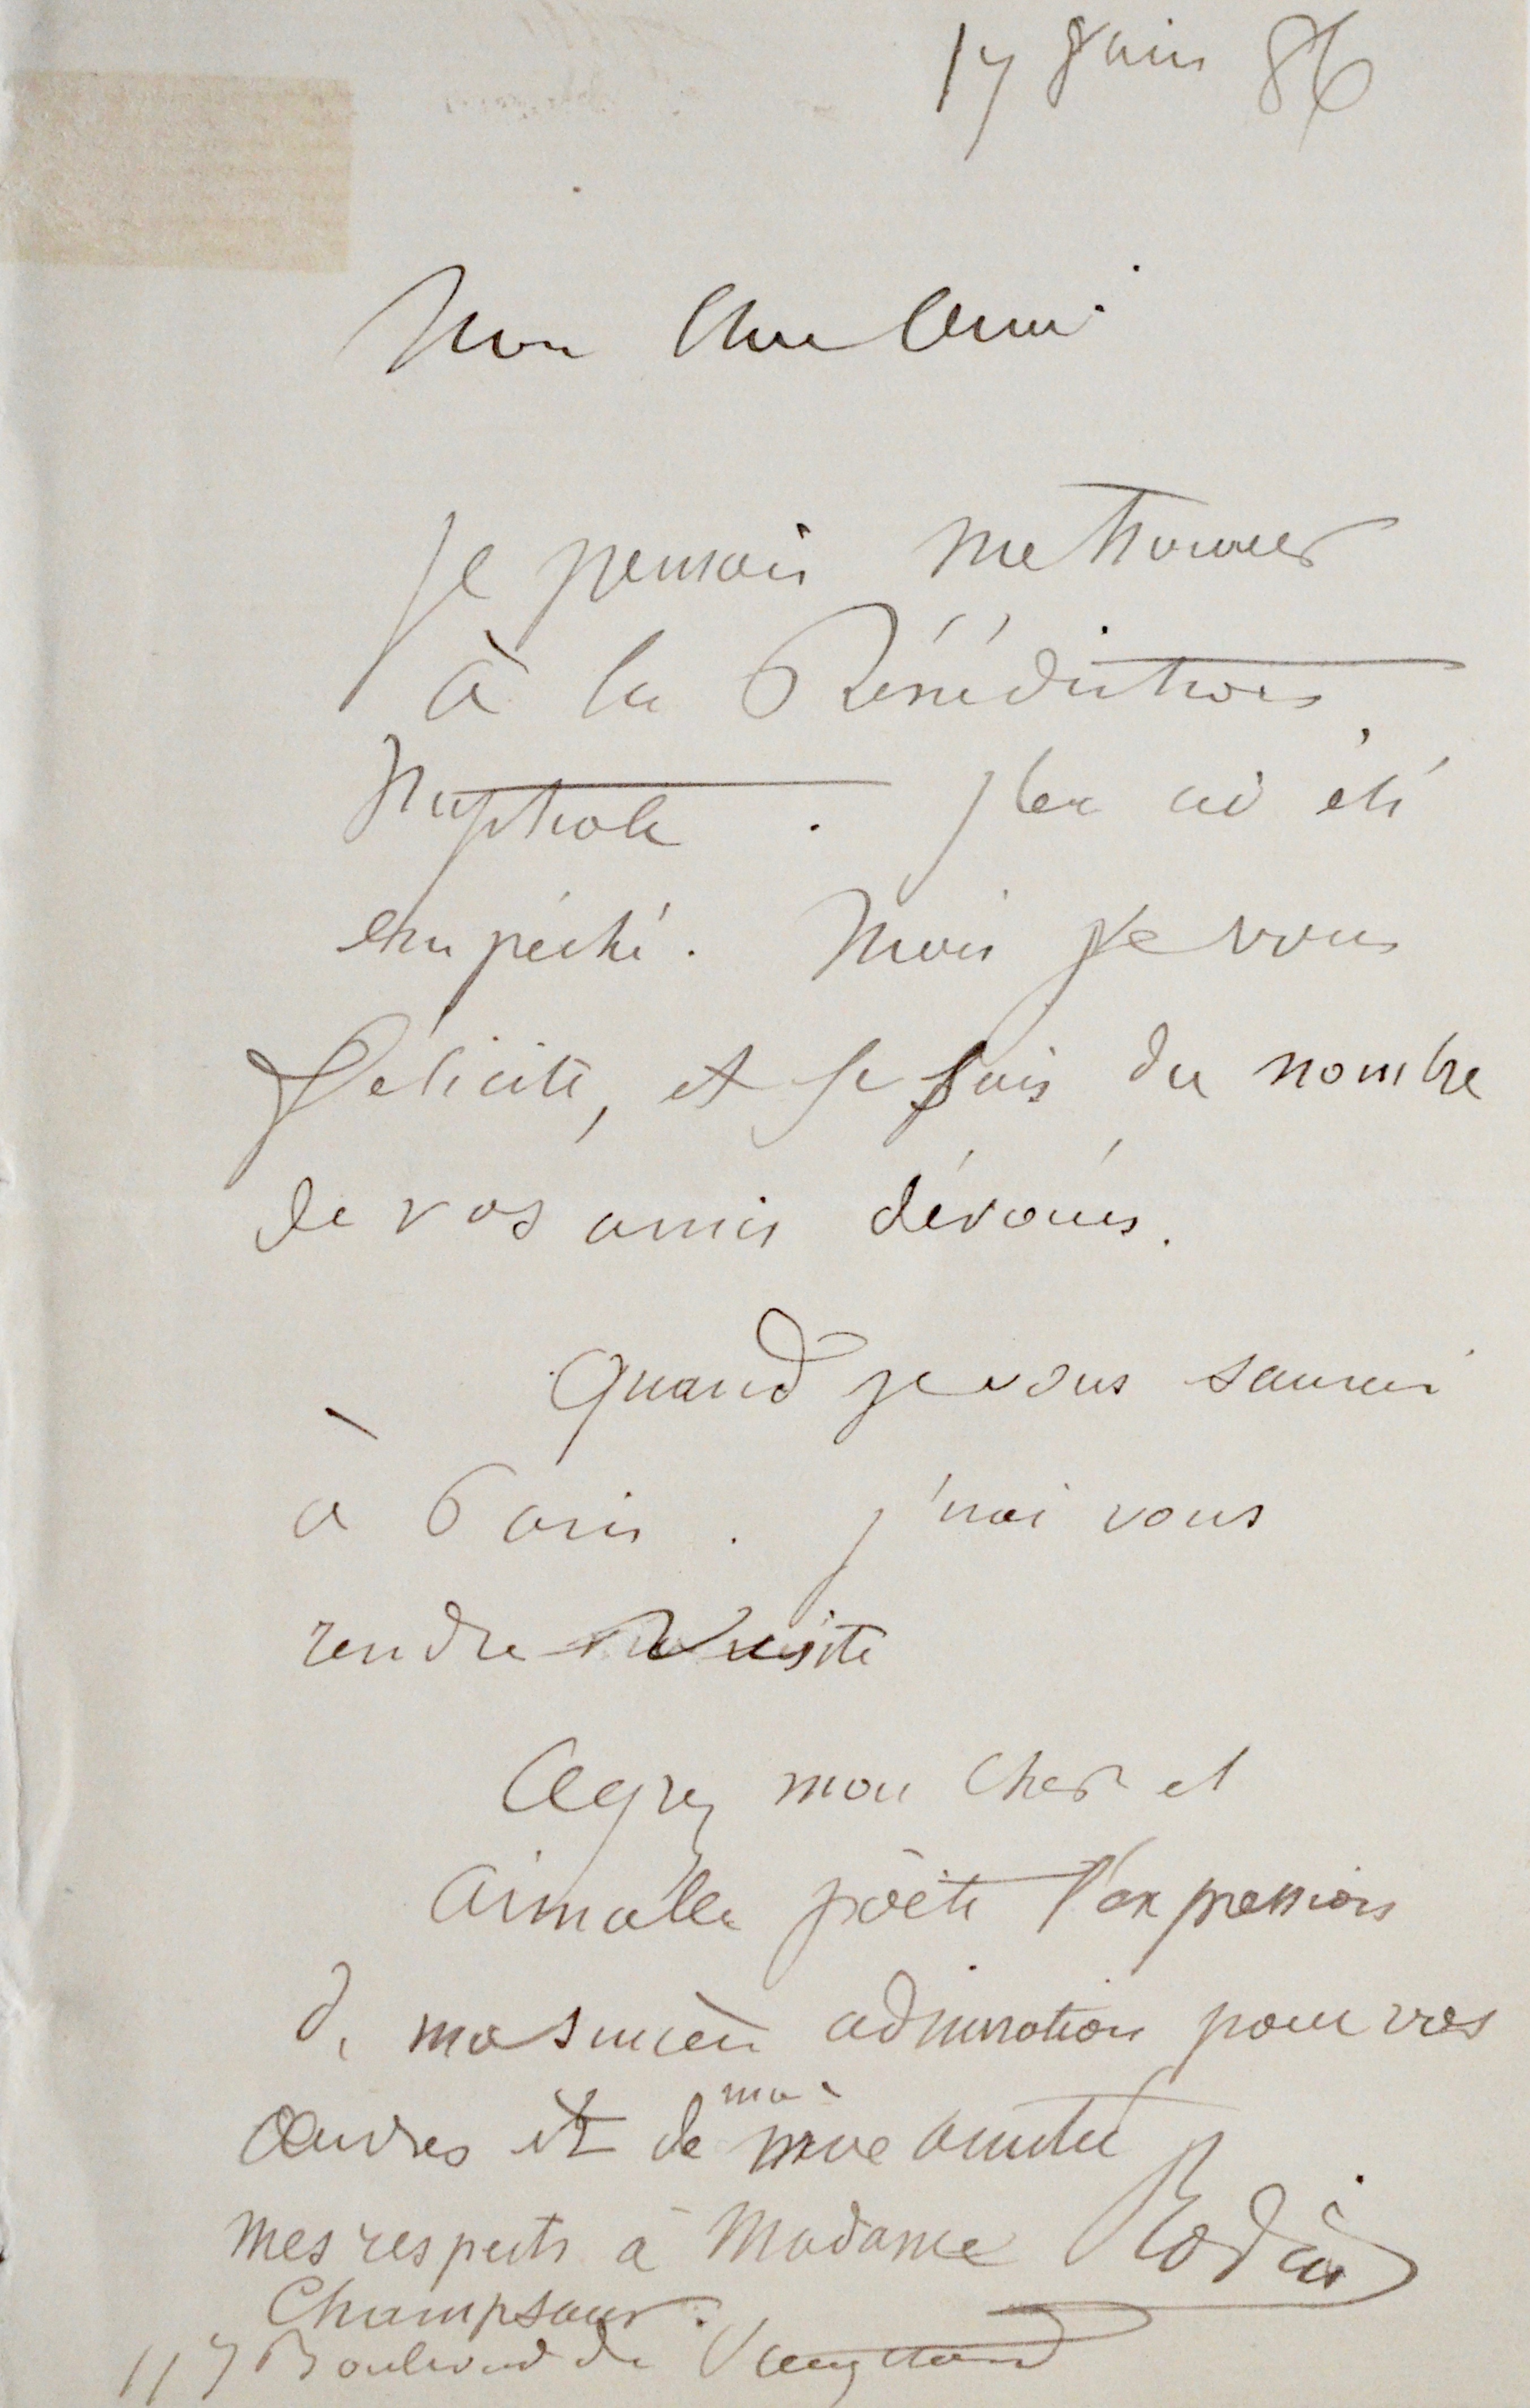 17 Juin 86
Mon Cher Ami
Je pensais me trouver
à la Bénédiction
Nuptiale . J'en ai été
empêché. Mais je vous
félicite, et je suis du nombre
de vos amis dévoués.
Quand je vous saurai
à Paris . j'irai vous
rendre visite
Agrez mon cher et
aimable poète l'expression
de ma sincère admiration pour vos
œuvres et de ma vive amitié
mes respects à Madame Rodin
Champsaur.
117 Boulevard de Vaugirard